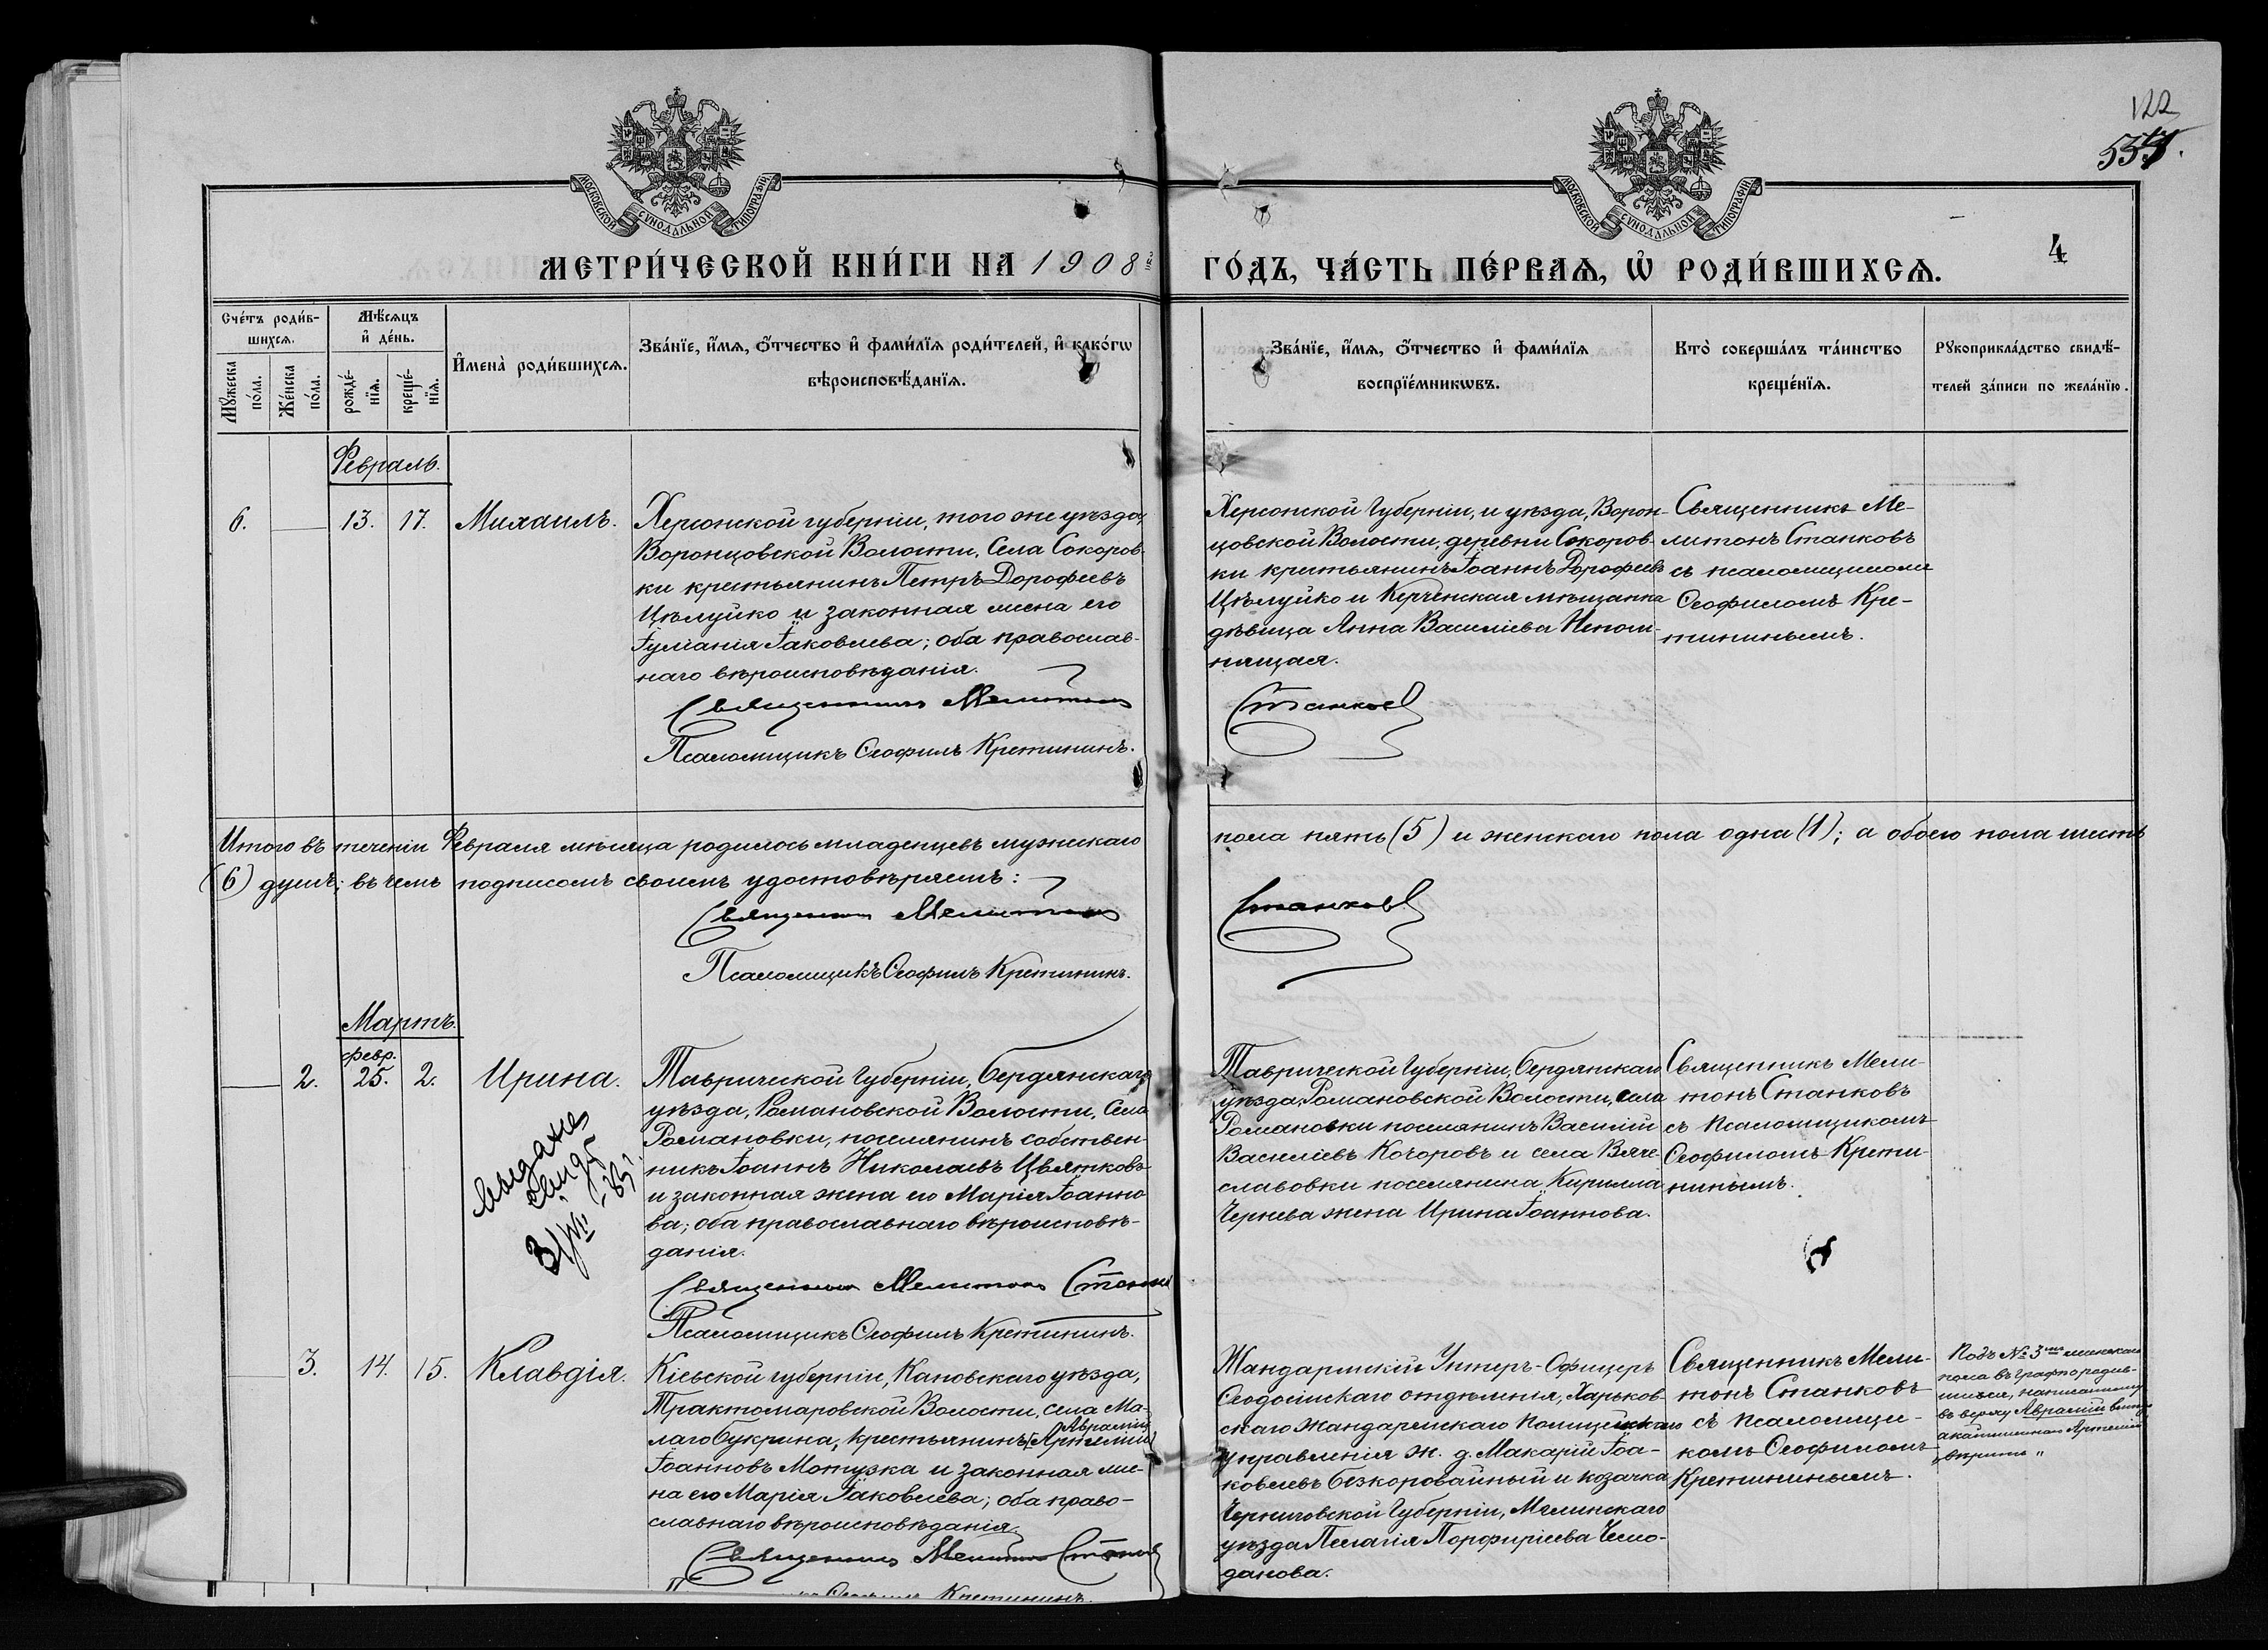 122
554.
МОСКОВСКОЙ СѴНОДАЛЬНОЙ ТИПОГРАФІИ
МОСКОВСКОЙ СѴНОДАЛЬНОЙ ТИПОГРАФІИ
МЕТРИ́ЧЕСКОЙ КНИ́ГИ НА 1908
ГО́ДЪ, ЧА́СТЬ ПЕ́РВАѦ, Ѡ҆ РОДИ́ВШИХСѦ.
4
Сче́тъ роди́в-
шихсѧ.
Мꙋ́жеска
по́ла.
Же́нска
по́ла.
Мѣ́сѧцъ
и҆ де́нь.
рожде́-
нїѧ.
креще́-
нїѧ.
И҆мена̀ роди́вшихсѧ.
Зва́нїе, и҆́мѧ, ѻ҆́тчество и҆ фами́лїѧ роди́телей, и҆ како́гѡ
вѣроисповѣ́данїѧ.
Зва́нїе, и҆́мѧ, ѻ҆́тчество и҆ фами́лїѧ
воспрїе́мникѡвъ.
Кто̀ соверша́лъ та́инство
креще́нїѧ.
Рꙋкоприкла́дство свидѣ́-
телей за́писи по жела́нїю.
Февраль.
6.
13.
17.
Михаилъ.
Херсонской губерніи, того же уѣзда,
Воронцовской Волости, Села Сокоров-
ки крестьянинъ Петръ Дорофеевъ
Цѣлуйко и законная жена его
Іуліанія Іаковлева; оба православ-
наго вѣроисповѣданія.
Священникъ Мелитонъ
Псаломщикъ Ѳеофилъ Кретининъ.
Херсонской Губерніи, и уѣзда, Ворон-
цовской Волости, деревни Сокоров-
ки крестьянинъ Іоаннъ Дорофеевъ
Цѣлуйко и Керченская мѣщанка
дѣвица Анна Василіева Непом-
нящая.
Станковъ
Священникъ Ме-
литонъ Станковъ
съ псаломщикомъ
Ѳеофиломъ Кре-
тининымъ.
Итого въ теченіи Февраля мѣсяца родилось младенцевъ мужескаго
пола пять (5) и женскаго пола одна (1); а обоего пола шесть
(6) душъ; въ чемъ подписомъ своимъ удостовѣряемъ:
Священникъ Мелитонъ
Станковъ
Псаломщикъ Ѳеофилъ Кретининъ.
Мартъ.
2.
февр.
25.
2.
Ирина.
Таврической Губерніи, Бердянскаго
уѣзда, Романовской Волости, Села
Романовки, поселянинъ собствен-
никъ Іоаннъ Николаевъ Цвятковъ
и законная жена его Марія Іоанно-
ва; оба православнаго вѣроисповѣ-
данія.
Священникъ Мелитонъ Станковъ
Псаломщикъ Ѳеофилъ Кретининъ.
Таврической Губерніи, Бердянскаго
уѣзда, Романовской Волости, села
Романовки поселянинъ Василій
Василіевъ Кочоровъ и села Вяче-
славовки поселянина Кирилла
Чернева жена Ирина Іоаннова.
Священникъ Мели-
тонъ Станковъ
съ Псаломщикомъ
Ѳеофиломъ Крети-
нинымъ.
3.
14.
15.
Клавдія.
Кіевской губерніи, Кановскаго уѣзда,
Трактомаровской Волости, села Ма-
Аврамій
лаго Букрина, крестьянинъ [Артемій]
Іоанновъ Мотузка и законная же-
на его Марія Іаковлева; оба право-
славнаго вѣроисповѣданія.
Священникъ Мелитонъ Станковъ
Ѳеофилъ Кретининъ.
Жандармскій Унтеръ-Офицеръ
Ѳеодосійскаго отдѣленія, Харьков-
скаго Жандармскаго полицейскаго
управленія ж. д. Макарій Іоа-
ковлевъ Безкоровайный и козачка
Черниговской Губерніи, Мглинскаго
уѣзда Пелагія Порфиріева Чемо-
данова.
Священникъ Мели-
тонъ Станковъ
съ псаломщи-
комъ Ѳеофиломъ
Кретининымъ.
Подъ № 3 женскаго
пола въ графѣ родив-
шихся, написанному
въ верху Аврамій
Артемій
вѣрить"